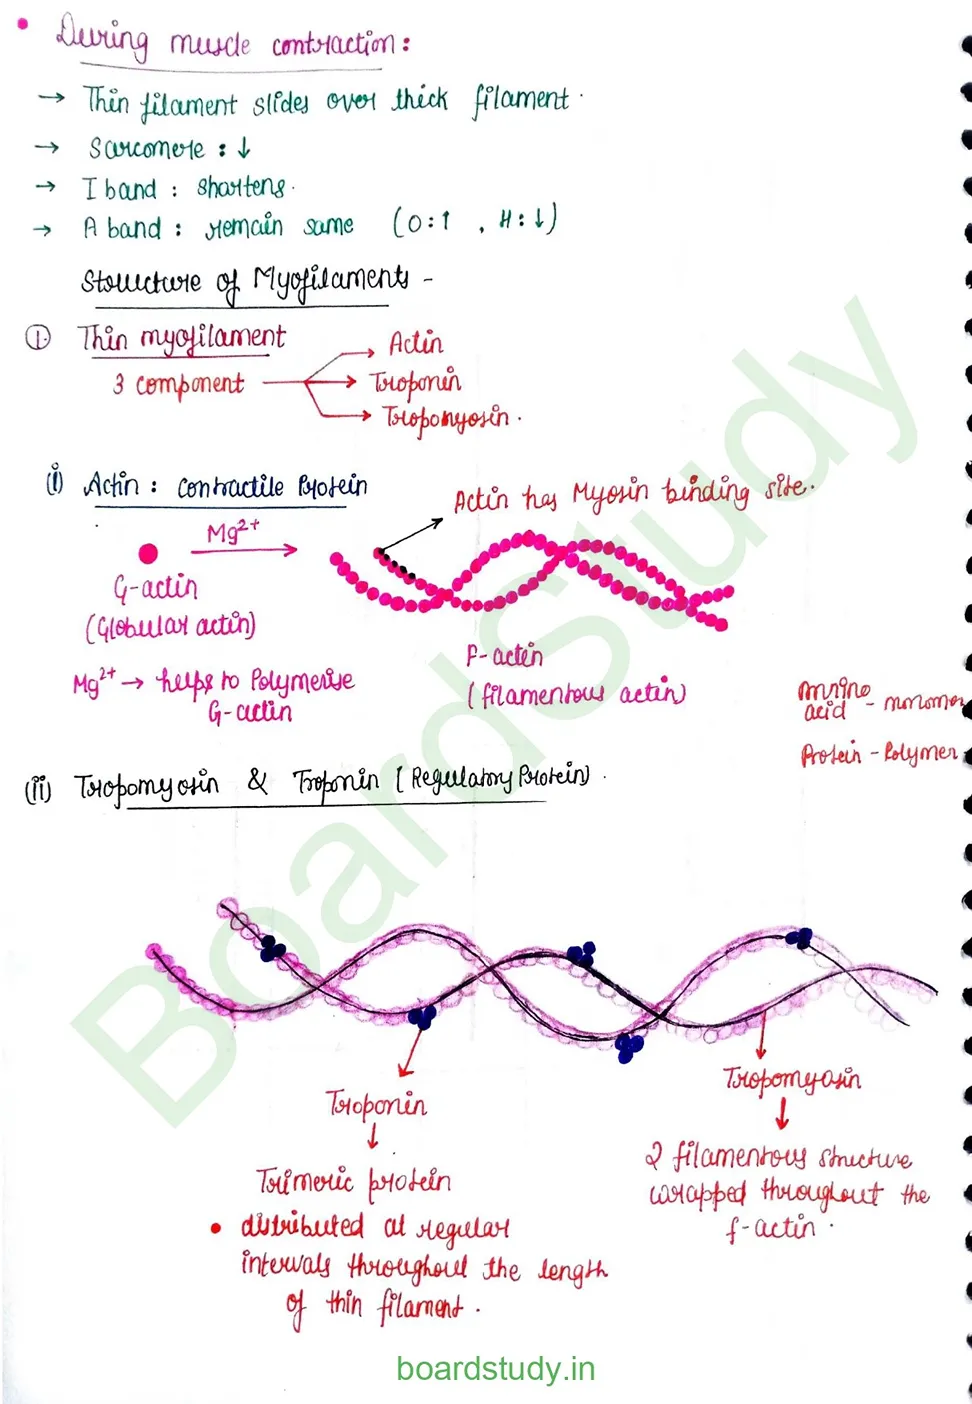 • During muscle contraction:
→ Thin filament slides over thick filament.
→ Sarcomere : ↓
→ I band : shortens.
→ A band : remain same (O:↑ , H:↓)
Structure of Myofilaments -
① Thin myofilament
3 component → Actin
→ Troponin
→ Tropomyosin.
(i) Actin : contractile Protein
Actin has Myosin binding site.
Mg²⁺
G-actin
(Globular actin)
F-actin
(filamentous actin)
Mg²⁺ → helps to Polymerise
G-actin
Amino acid - monomer
Protein - Polymer
(ii) Tropomyosin & Troponin (Regulatory Protein).
Troponin
↓
Trimeric protein
• distributed at regular
intervals throughout the length
of thin filament.
Tropomyosin
↓
2 filamentous structure
wrapped throughout the
f-actin.
BoardStudy
boardstudy.in